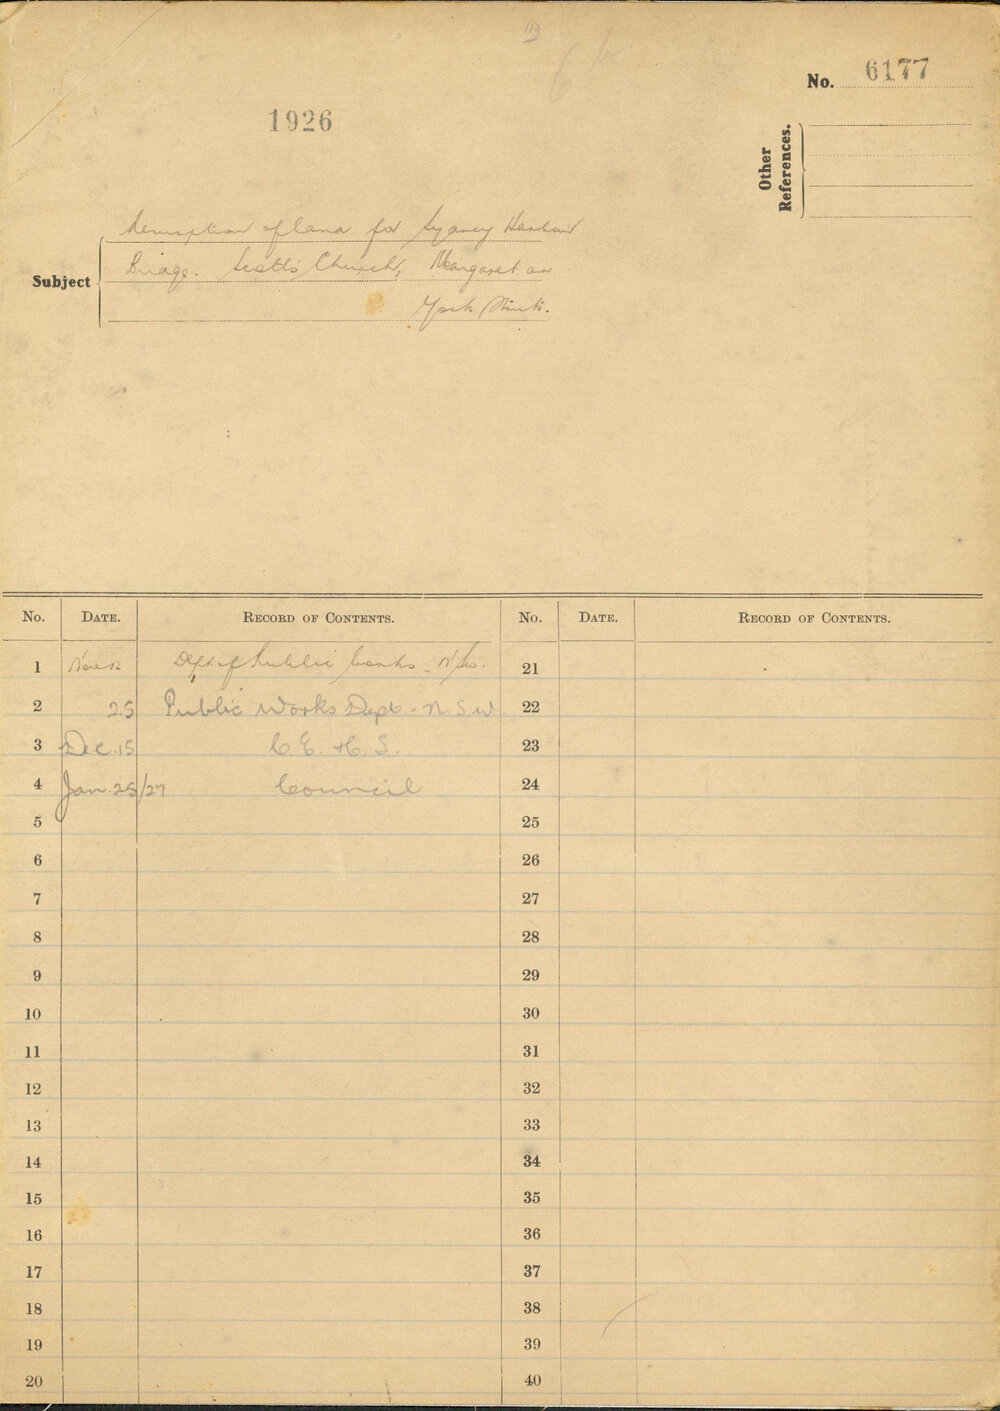 113
No. 6177
1926
Other References.
Subject
Resumption of land for Sydney Harbour
Bridge. Scott's Church, Margaret an
York Streets.
No. DATE. RECORD OF CONTENTS. No. DATE. RECORD OF CONTENTS.
1 Nov 12 Dept of Public Works. N.S.W. 21
2 25 Public Works Dept - N.S.W. 22
3 Dec. 15 C. E. H. S. 23
4 Jan. 25/27 Council 24
5 25
6 26
7 27
8 28
9 29
10 30
11 31
12 32
13 33
14 34
15 35
16 36
17 37
18 38
19 39
20 40